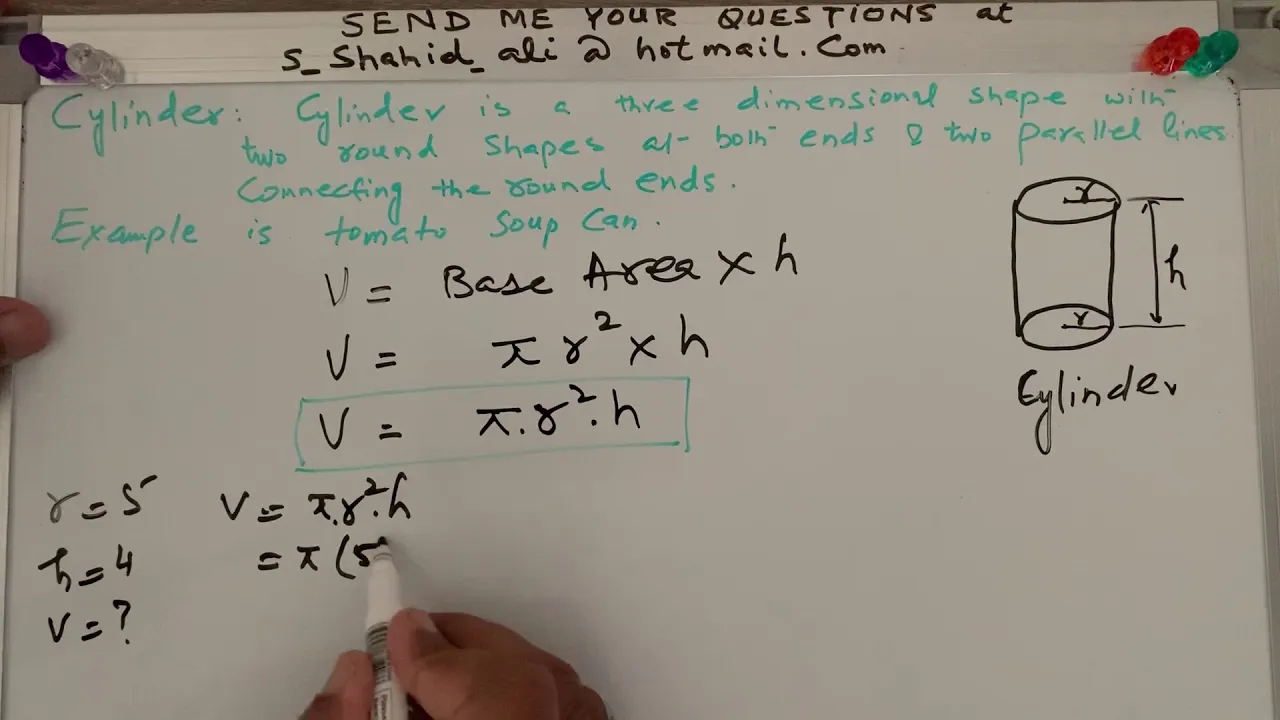 SEND ME YOUR QUESTIONS at
S_Shahid_ali@hotmail.Com
Cylinder: Cylinder is a three dimensional shape with
two round shapes at both ends & two parallel lines
Connecting the round ends.
Example is tomato Soup Can.
V = Base Area × h
V = π r² × h
V = π.r².h
r = 5
h = 4
V = ?
V = π.r².h
= π (5
r
h
r
Cylinder